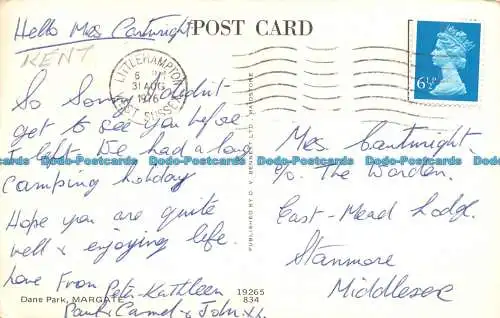 Hello Mrs Cartwright
KENT
POST CARD
LITTLEHAMPTON
6 PM
31 AUG
1976
WEST SUSSEX
6½P
So Sorry didn't
get to see you before
I left. We had a long
camping holiday
Hope you are quite
well & enjoying life.
Love From
Peter - Kathleen
Paul & Carmel & John xx
Mrs Cartwright.
c/o The Warden.
East-Mead Lodge.
Stanmore
Middlesex
PUBLISHED BY D. V. BENNETT LTD. MAIDSTONE
Dane Park, MARGATE
19265
834
Dodo-Postcards Dodo-Postcards Dodo-Postcards